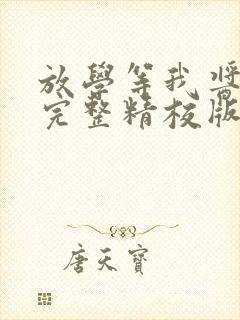 放學等我 將
完整精校版
唐天寶